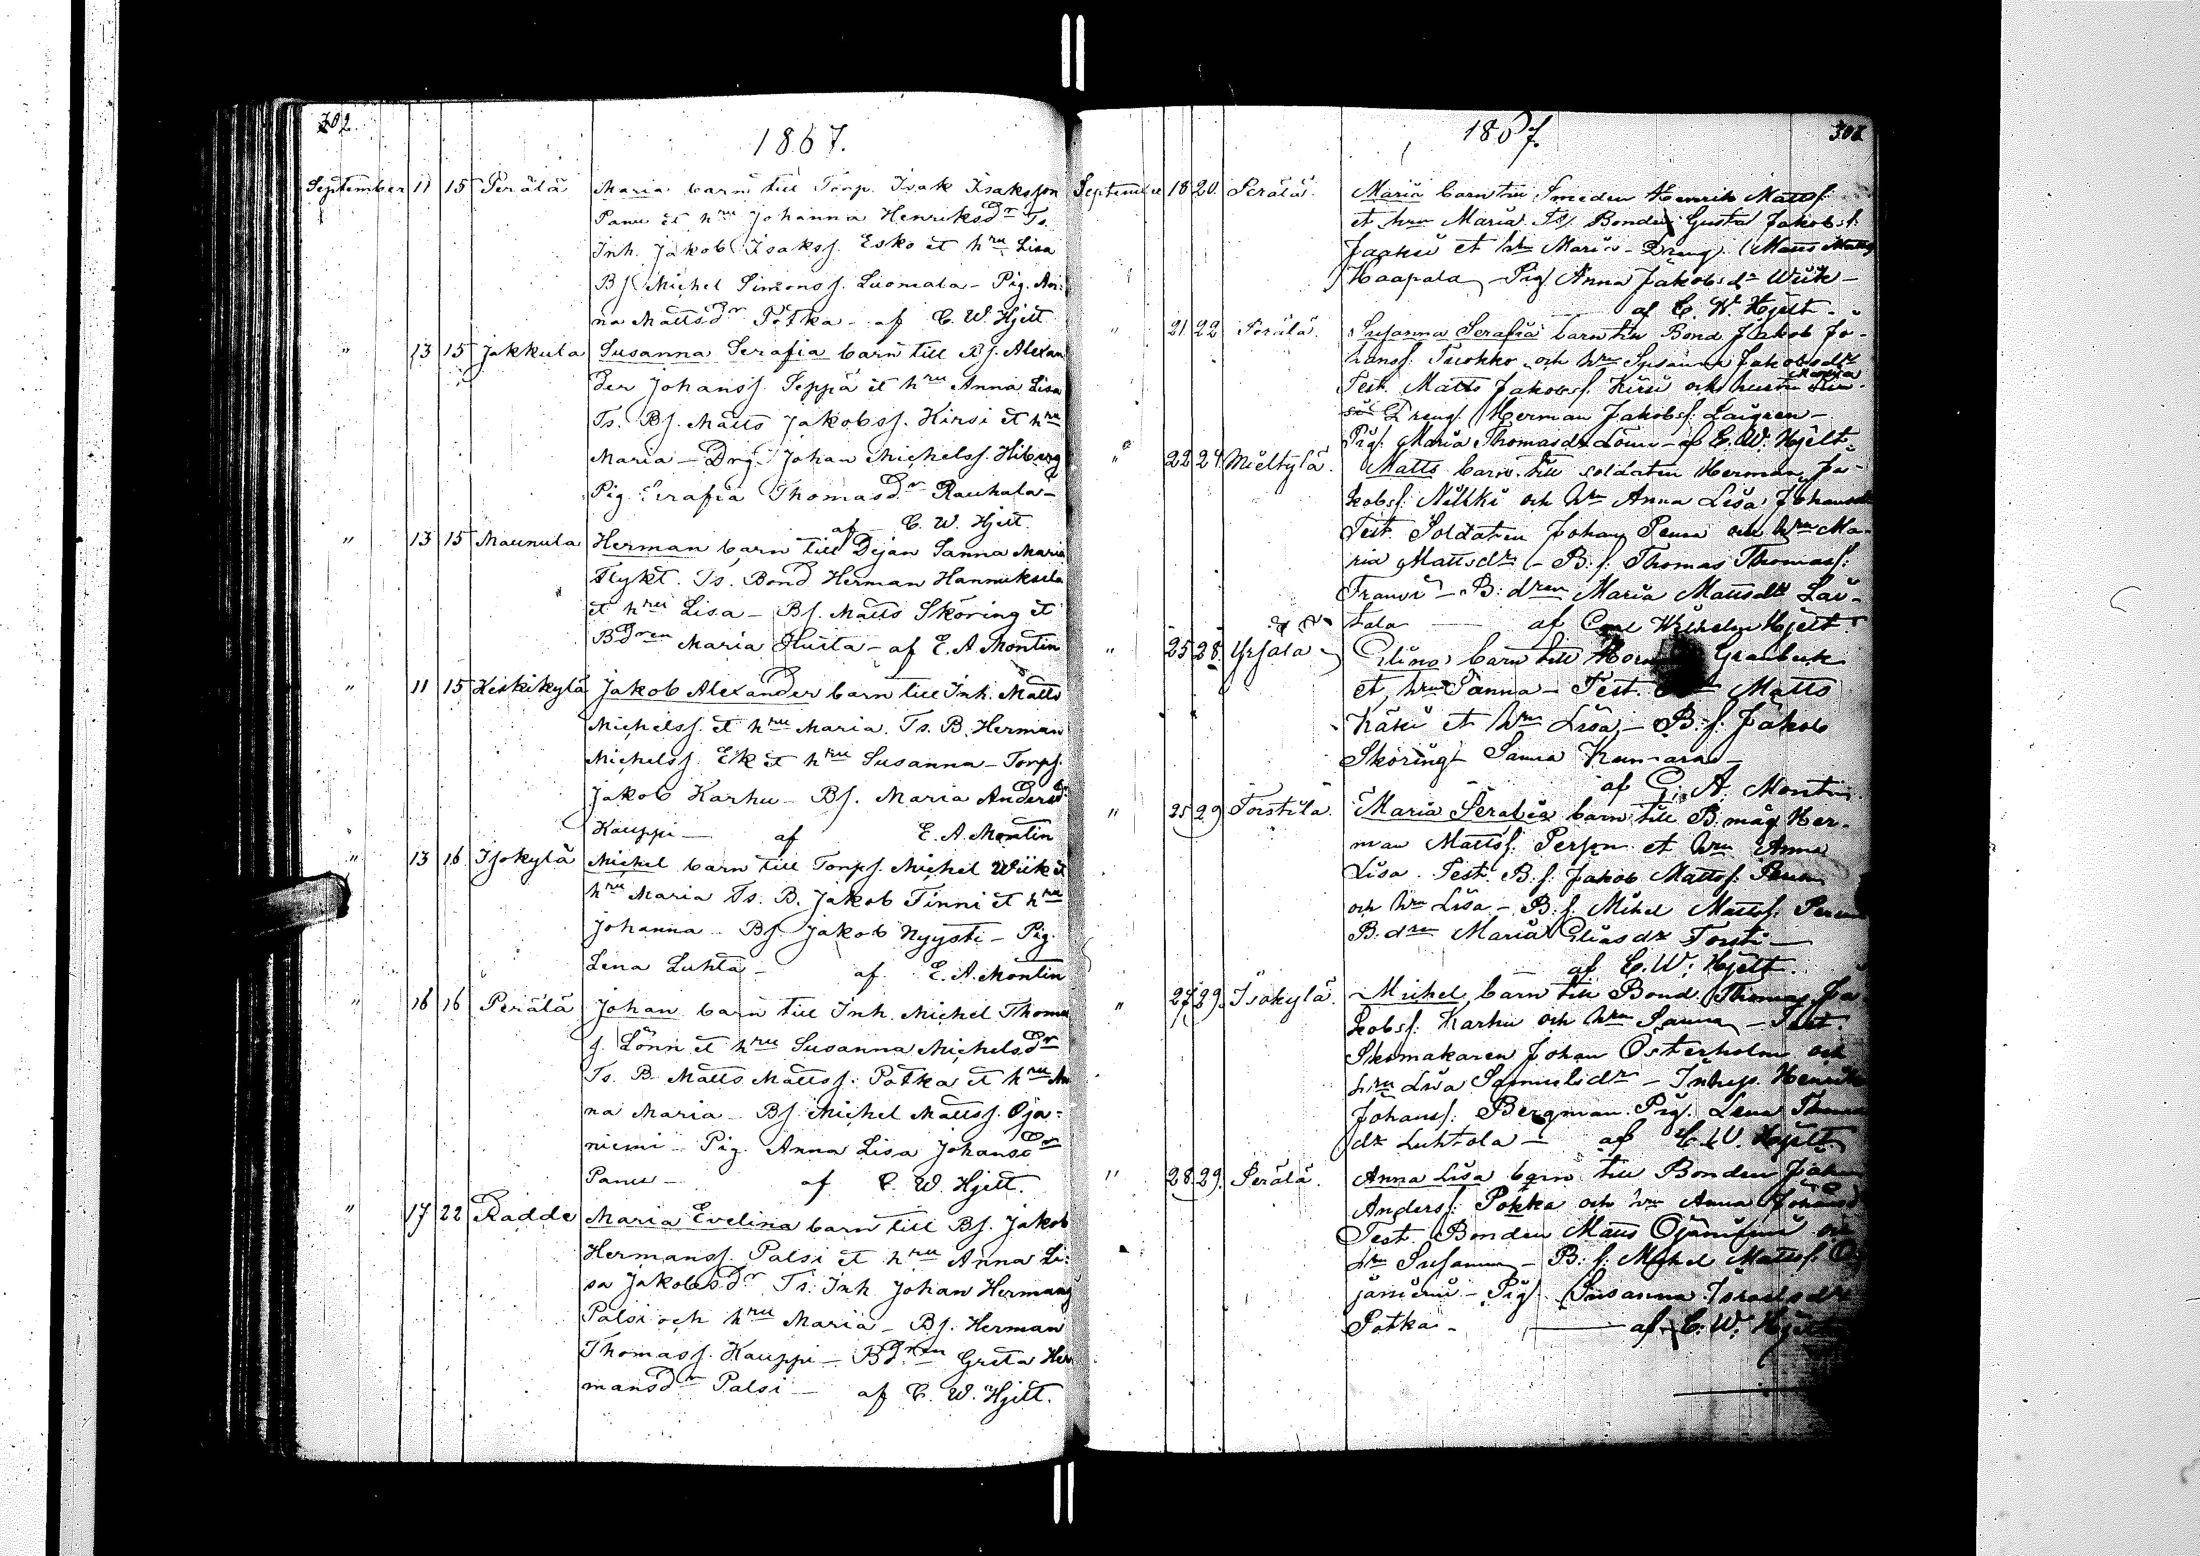 302.
1867.
September 11 15 Perälä Maria barn till Torp. Isak Isaksson
Panu et hru Johanna Henriksdr Ts.
Inh. Jakob Isakss. Esko et hru Lisa
Bs Michel Simonss. Luomala - Pig. An:
na Mattsdr Potka - af C. W. Hjelt
" 13 15 Jakkula Susanna Serafia barn till Bs. Alexan
der Johanss. Seppä et hru Anna Lisa
Ts. Bs. Matts Jakobss. Hirsi et hru
Maria - Drg. Johan Michelss. Hiberg
Pig Serafia Thomasdr Rauhala -
af C. W. Hjelt.
" 13 15 Maunula Herman barn till Dejan Sanna Maria
Flykt. Ts. Bond Herman Hannuksela
et hru Lisa - Bs. Matts Sköring et
Bdren Maria Huita - af E. A. Montin
" 11 15 Keskikylä Jakob Alexander barn till Inh. Matts
Michelss. et hru Maria. Ts. B. Herman
Michelss. Ek et hru Susanna - Torps.
Jakob Karhu - Bs. Maria Andersdr
Kauppi - af E. A. Montin
" 13 16 Isokylä Michel barn till Torps. Michel Wiik et
hru Maria Ts. B. Jakob Finni et hru
Johanna - Bs Jakob Nyysti - Pig.
Lena Luhta - af E. A. Montin
" 16 16 Perälä Johan barn till Inh. Michel Thomas
s. Lönn et hru Susanna Michelsdr
Ts. B. Matts Mattss. Potka et hru An
na Maria - Bs Michel Mattss. Oja=
niemi - Pig. Anna Lisa Johansdr
Panu - af C. W. Hjelt.
" 17 22 Radde Maria Evelina barn till Bs. Jakob
Hermanss. Palsi et hru Anna Li:
sa Jakobsdr Ts. Inh Johan Hermans
Palsi och hru Maria - Bs. Herman
Thomass. Kauppi - Bdren Greta Her
mansdr Palsi - af C. W. Hjelt.
1867.
September 18 20. Perälä. Maria barn till Smeden Henrik Mattss.
et hru Maria. Ts. Bonden Gustaf Jakobss.
Jaakù et hru Maria - Dreng. Matts
Haapala - Pig Anna Jakobsdr Wiik -
af C. W. Hjelt.
" 21 22 Perälä. Susanna Serafia barn till Bond Jakob Jo-
hanss. Tuokko och hru Susanna Jakobsdr
Test. Matts Jakobss. Kirsi och hustru Maria
Dreng. Herman Jakobss. Laigren -
Pig. Maria Thomasdr Lönn - af C. W. Hjelt.
" 22 24 Mieltylä. Matts barn till soldaten Herman Ja-
kobss. Nillki och hru Anna Lisa Johansdr
Test. Soldaten Johan och hru Ma-
ria Mattsdr - B. s. Thomas Thomass.
B: dren Maria Mattsdr Lau-
tala - af Carl Wilhelm Hjelt.
" 25 28. Yrjala Elina barn till Graubuk
et hru Sanna - Test. Matts
Käki et hru Lisa, - B. s. Jakob
Sköring Sanna
af E. A. Montin.
" 25 29 Torstila. Maria Serafia barn till B. måg Her-
man Mattss. Person et hru Anna
Lisa. Test. B. s. Jakob Mattss.
och hru Lisa - B. s. Mikel Mattss.
B. dren Maria Eliasdr Torsti -
af C. W. Hjelt.
" 27 29. Isokylä. Michel, barn till Bond. Thomas Ja
kobss. Karhu och hru Sanna - Test.
Skomakaren Johan Österholm och
hru Lisa Samuelsdr - Inhys. Henrik
Johanss. Bergman. Pig. Lena Thomas
dr Luhtala - af C. W. Hjelt
" 28 29. Perälä. Anna Lisa barn till Bonden
Anderss. Pokka och hru Anna
Test. Bonden Matts Ojaniemi och
hru Susanna - B. s. Michel Mattss. O
janiemi - Pig. Susanna Israelsdr
Potka. - af C. W. Hjelt